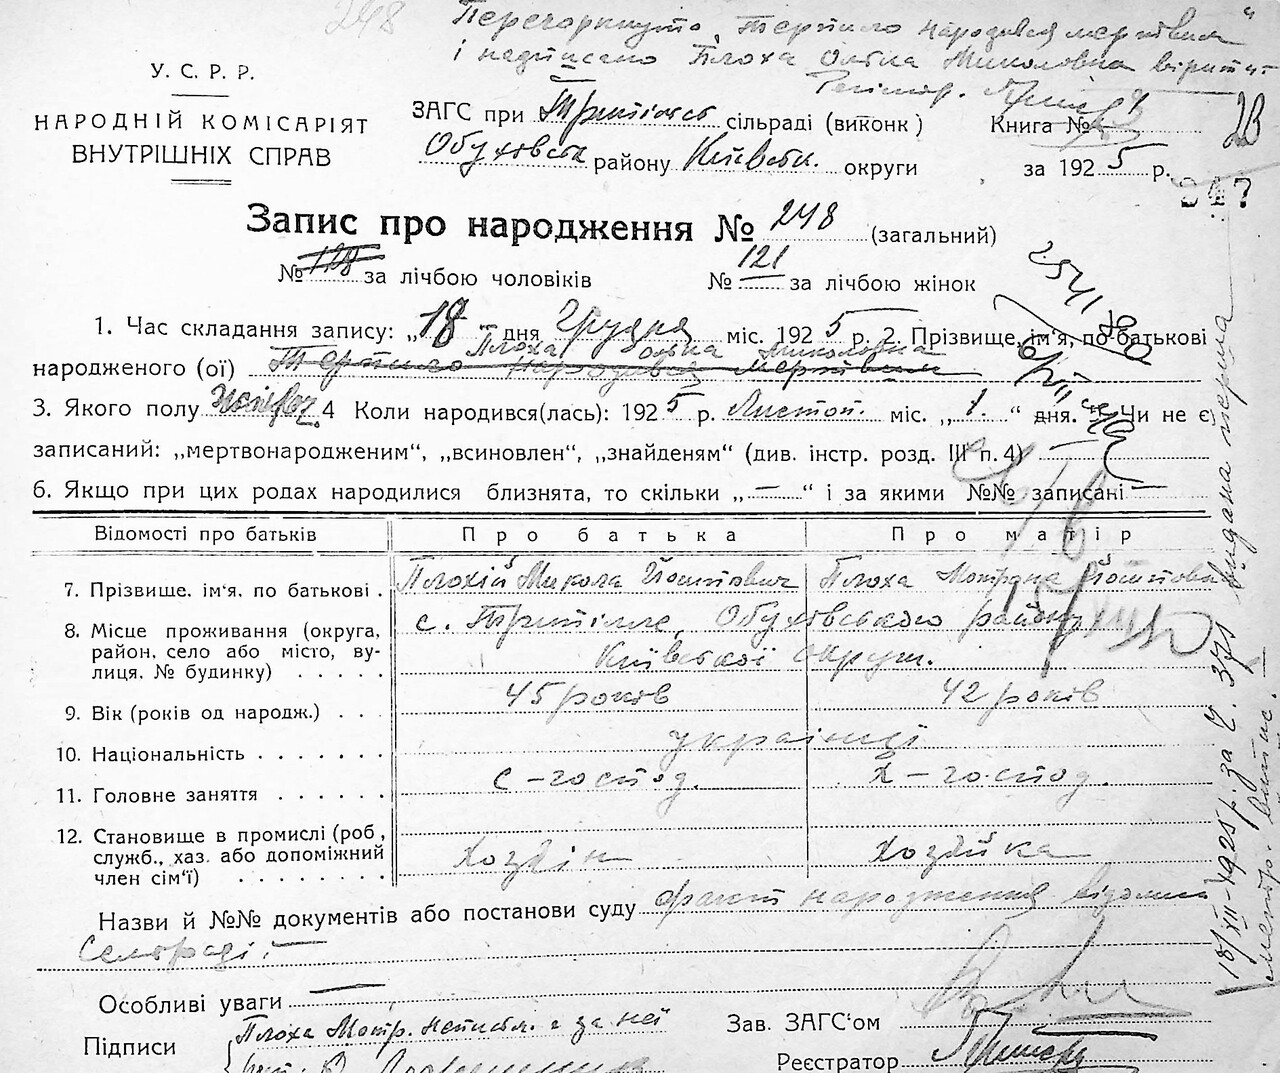 248
Перечоркнуто „Тертило народився мертвим“
і надписано Плоха Ольга Миколовна вірити
Реєстр.
У. С. Р. Р.
НАРОДНІЙ КОМІСАРІЯТ
ВНУТРІШНІХ СПРАВ
ЗАГС при сільраді (виконк) Книга №
Обухівськ району Київськ. округи за 1925 р.
247
Запис про народження № 248 (загальний)
№ 128 за лічбою чоловіків № 121 за лічбою жінок
1. Час складання запису: „18“ дня Грудня міс. 1925 р. 2. Прізвище, ім'я, по-батькові
Плоха Ольга Миколовна
народженого (ої) Тертило народився мертвим
3. Якого полу Жіноч. 4 Коли народився(лась): 1925 р. Листоп. міс. „1.“ дня. 5. Чи не є
записаний: „мертвонародженим“, „всиновлен“, „знайденям“ (див. інстр. розд. III п. 4) —
6. Якщо при цих родах народилися близнята, то скільки „—“ і за якими №№ записані —
Відомості про батьків Про батька Про матір
7. Прізвище. ім'я. по батькові . Плохій Микола Йосипович Плоха Мотрона Йосиповна
8. Місце проживання (округа, с. Трипілле, Обухівського району
район, село або місто, ву- Київської округи.
лиця. № будинку) . . . . .
9. Вік (років од народж.) . . . 45 років 42 років
10. Національність . . . . . . українці
11. Головне заняття . . . . . . с-господ. х-господ.
12. Становище в промислі (роб,
служб., хаз. або допоміжний Хозяїн хозяйка
член сім'ї) . . . . . . . .
Назви й №№ документів або постанови суду факт народження відомий
Сельраді.—
Особливі уваги —
Зав. ЗАГС'ом
Підписи Плоха Мотр. неписьм. а за неї
Реєстратор
18/XII-1925 р. за Ч. 371 видана перша
метр. випис.—